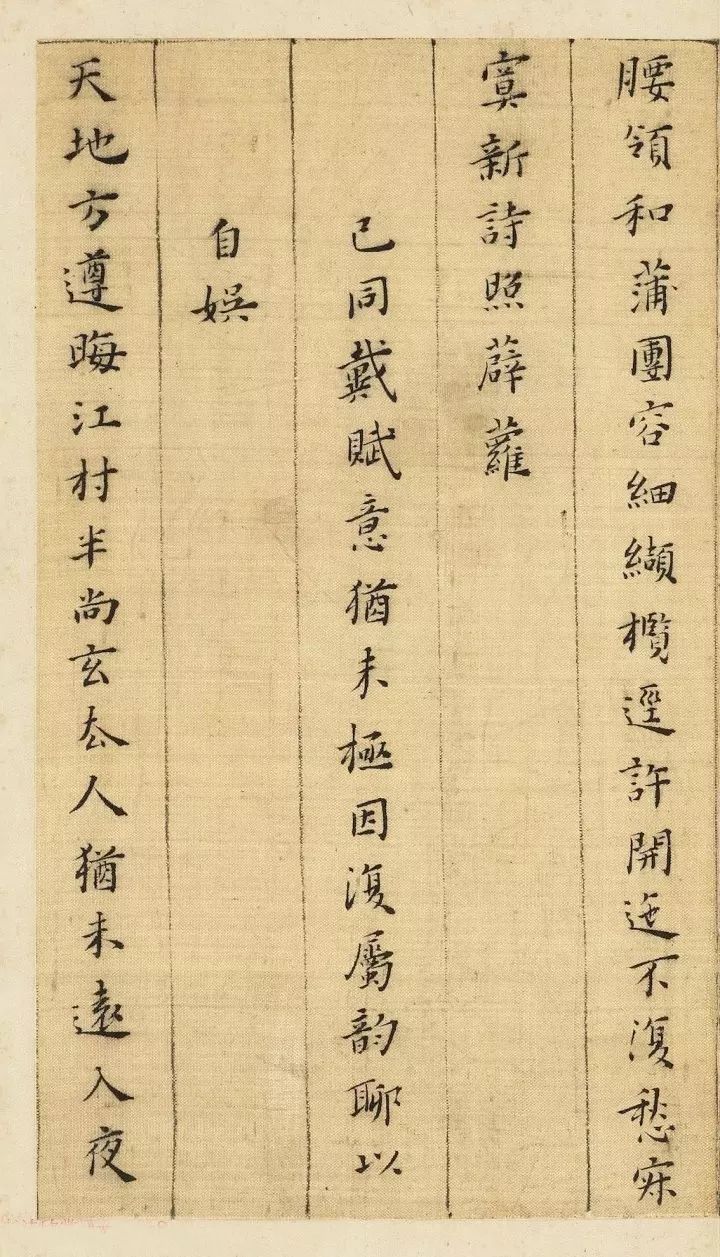 腰領和蒲團容細纈欖逕許開迤不復愁寂
寞新詩照薜蘿
已同戴賦意猶未極因復屬韵聊以
自娱
天地方遵晦江村半尚玄厺人猶未遠入夜